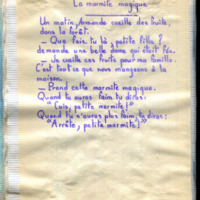 La marmite magique
Un matin, Armande cueille des fruits,
dans la forêt.
— Que fais-tu là, petite fille ?
demande une belle dame qui était fée.
— Je cueille ces fruits pour ma famille.
C'est tout ce que nous mangeons à la
maison.
— Prend cette marmite magique.
Quand tu auras faim tu diras:
"Cuis, petite marmite!"
Quand tu n'auras plus faim, tu diras:
"Arrête, petite marmite!"